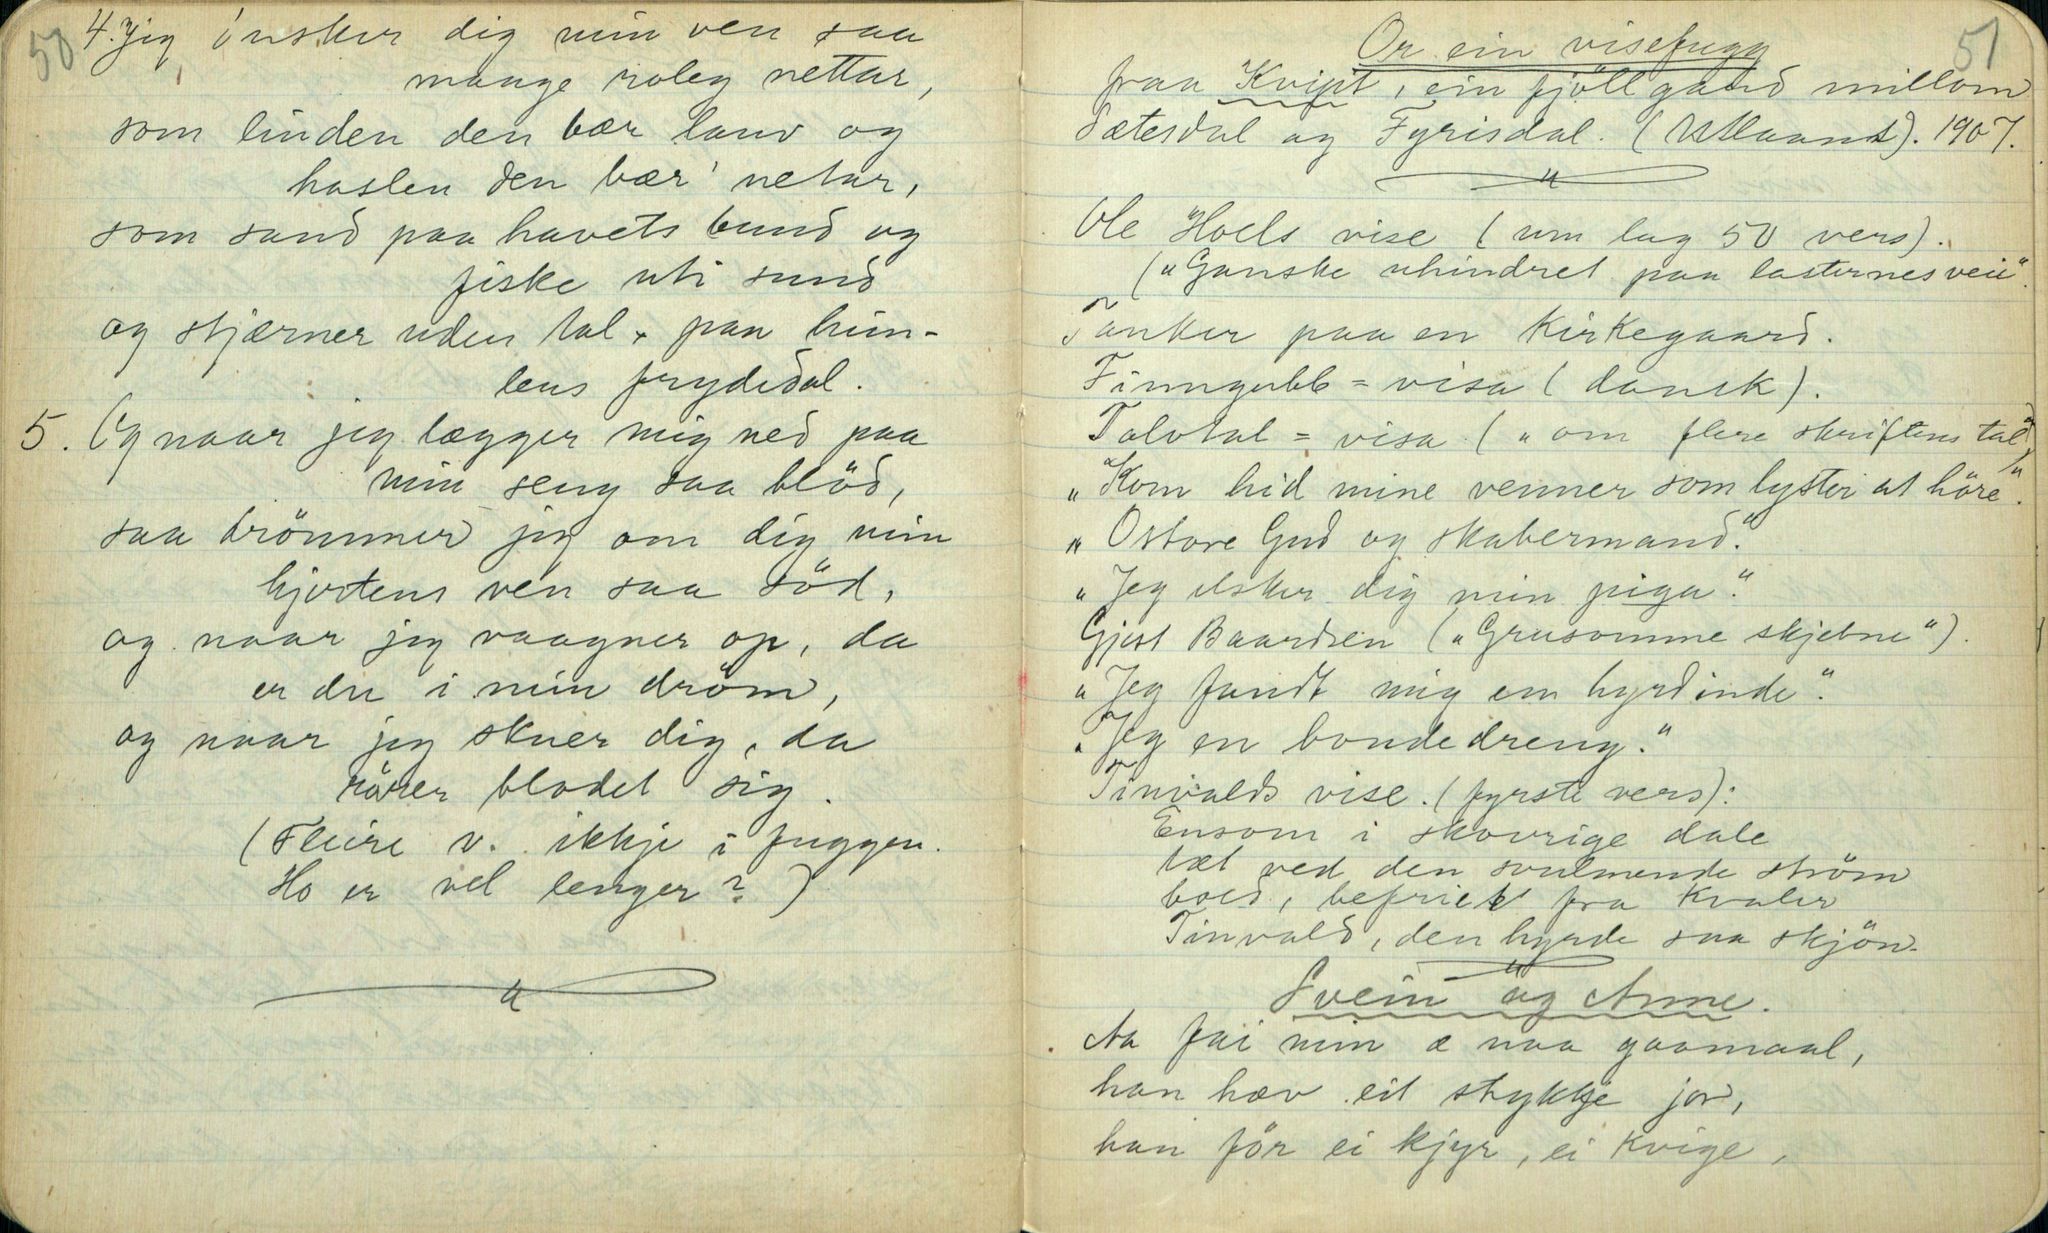 50
4. Jeg ønsker dig min ven saa
mange roleg nettar,
som linden den bær lauv og
haslen den bær netar,
som sand paa havets bund og
fiske uti sund
og stjærner uden tal paa him-
lens frydedal.
5. Og naar jeg lægger mig ned paa
min seng saa blöd,
saa drömmer jeg om dig min
hjertens ven saa söd,
og naar jeg vaagner op, da
er du i min dröm,
og naar jeg skuer dig, da
rörer blodet sig.
(Fleire v. ikkje i fuggen.
Ho er vel lenger?)
51
Or ein visefugg
fraa Kvipt, ein fjöllgard millom
Sætesdal og Fyrisdal. (Utlaant). 1907.
Ole Höels vise (um lag 50 vers).
("Ganske uhindret paa lasternes vei".
Tanker paa en Kirkegaard.
Finngubb = visa (dansk).
Talvtal = visa ("om flere skriftens tal")
"Kom hid mine venner som lyster at höre".
"O store Gud og skabermand."
"Jeg elsker dig min piga."
Gjest Baardsen ("Grusomme skjebne").
"Jeg fandt mig en hyrdinde".
"Jeg en bondedreng."
Tinvalds vise. (fyrste vers):
Ensom i skovrige dale
tæt ved den svulmende ström
boed, befriet fra Kvaler
Tinvald, den hyrde saa skjön.
Svein og Anne.
Aa fai min æ naa gaamaal,
han hæv eit stykkje jor,
han för ei kjyr, ei kvige,